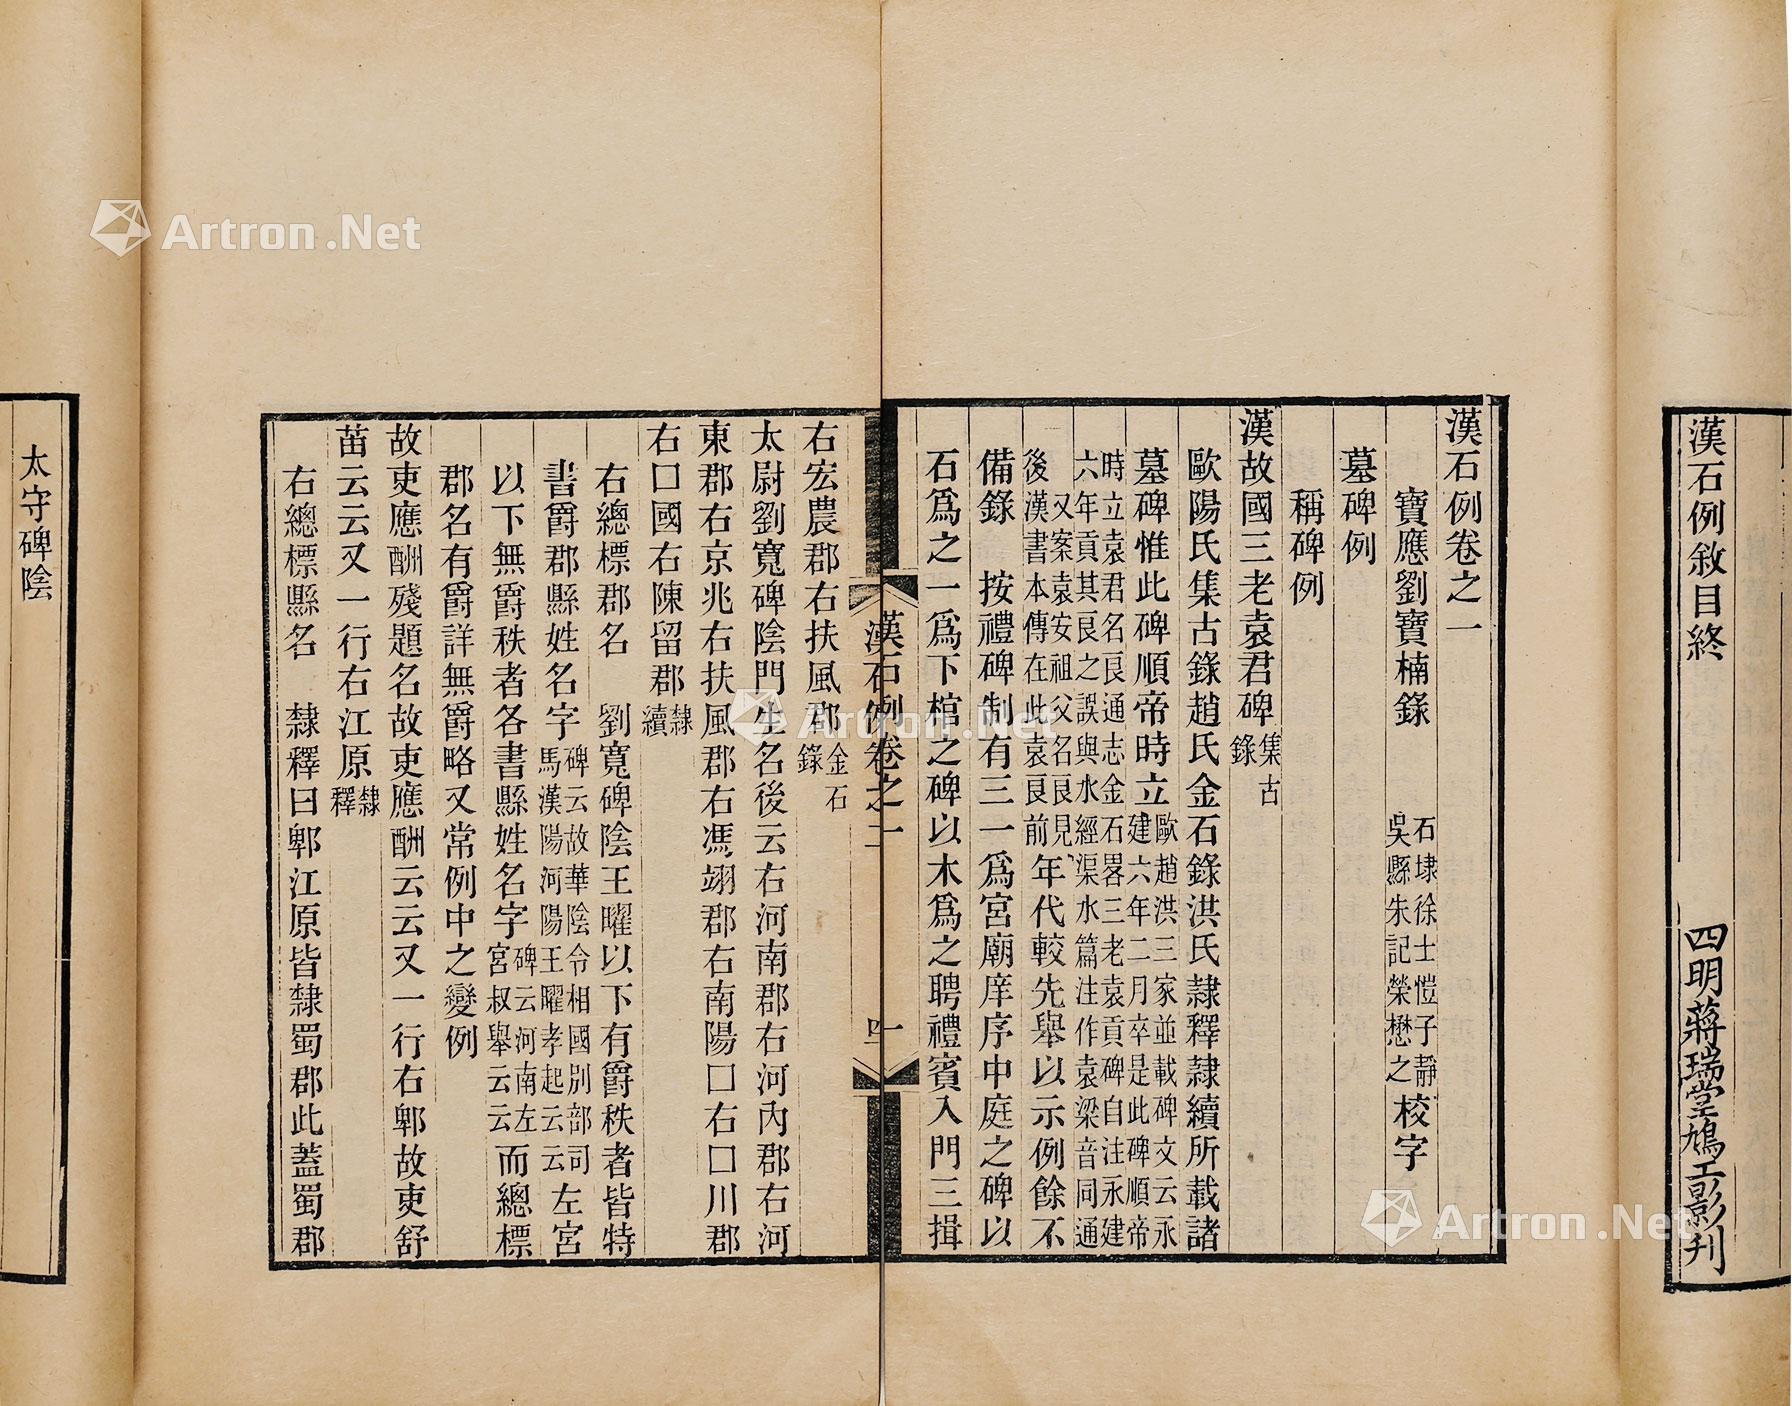 漢石例敘目終
四明蔣瑞堂鳩工影刊
漢石例卷之一
寶應劉寶楠錄 石埭徐士愷子靜 吳縣朱記榮懋之 校字
墓碑例
稱碑例
漢故國三老袁君碑 集古錄
歐陽氏集古錄趙氏金石錄洪氏隸釋隸續所載諸
墓碑惟此碑順帝時立 歐趙洪三家並載碑文云永建六年二月卒是此碑順帝
時立袁君名良通志金石畧三老袁貢碑自注永建六年貢其良之誤與水經渠水篇注作袁梁音同通
又案袁安祖父名良見後漢書本傳在此袁良前 年代較先舉以示例餘不
備錄 按禮碑制有三一爲宮廟庠序中庭之碑以
石爲之一爲下棺之碑以木爲之聘禮賓入門三揖
漢石例卷之一 一
漢石例卷之二 四
右宏農郡右扶風郡 金石錄
太尉劉寬碑陰門生名後云右河南郡右河內郡右河
東郡右京兆右扶風郡右馮翊郡右南陽囗右囗川郡
右囗國右陳留郡 隸續
右總標郡名 劉寬碑陰王曜以下有爵秩者皆特
書爵郡縣姓名字 碑云故華陰令相國別部司馬漢陽河陽王曜孝起云云 左宮
以下無爵秩者各書縣姓名字 碑云河南左宮叔舉云云 而總標
郡名有爵詳無爵略又常例中之變例
故吏應酬殘題名故吏應酬云云又一行右郫故吏舒
苗云云又一行右江原 隸釋
右總標縣名 隸釋曰郫江原皆隸蜀郡此蓋蜀郡
太守碑陰
Artron.Net
Artron.Net
Artron.Net